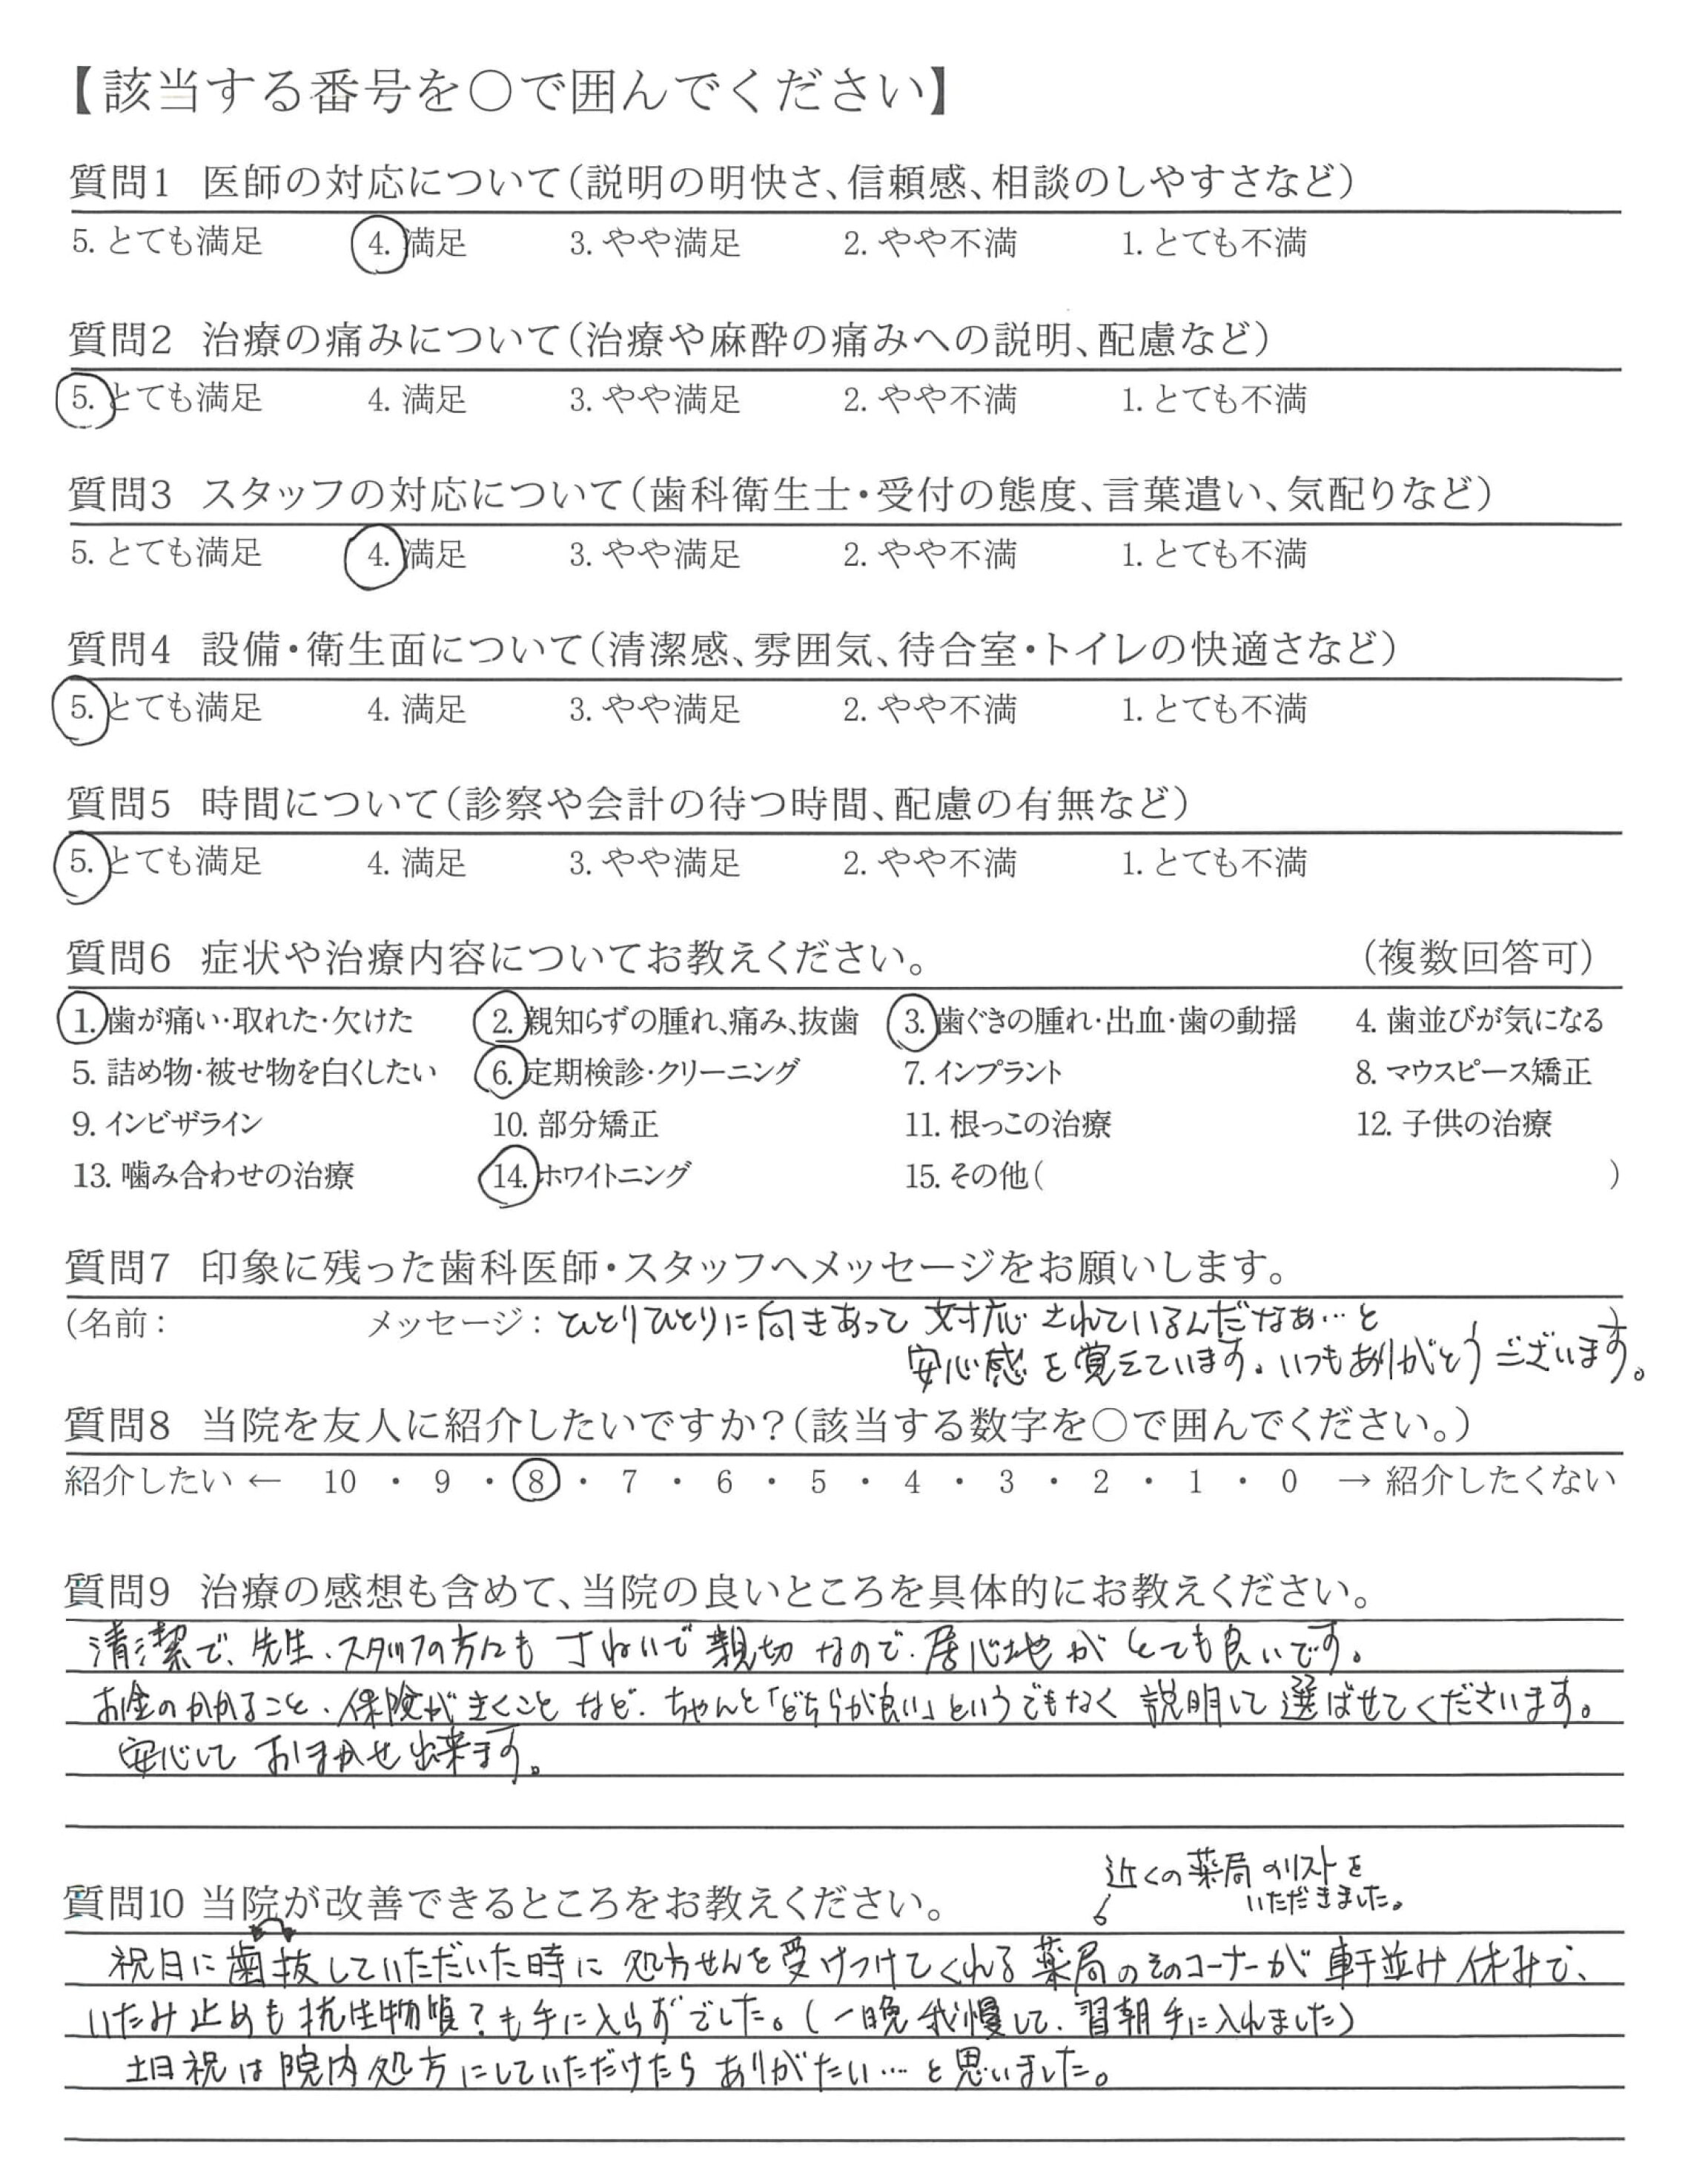 【該当する番号を○で囲んでください】
質問1 医師の対応について(説明の明快さ、信頼感、相談のしやすさなど)
5. とても満足 4. 満足 3. やや満足 2. やや不満 1. とても不満
質問2 治療の痛みについて(治療や麻酔の痛みへの説明、配慮など)
5. とても満足 4. 満足 3. やや満足 2. やや不満 1. とても不満
質問3 スタッフの対応について(歯科衛生士・受付の態度、言葉遣い、気配りなど)
5. とても満足 4. 満足 3. やや満足 2. やや不満 1. とても不満
質問4 設備・衛生面について(清潔感、雰囲気、待合室・トイレの快適さなど)
5. とても満足 4. 満足 3. やや満足 2. やや不満 1. とても不満
質問5 時間について(診察や会計の待つ時間、配慮の有無など)
5. とても満足 4. 満足 3. やや満足 2. やや不満 1. とても不満
質問6 症状や治療内容についてお教えください。 (複数回答可)
1. 歯が痛い・取れた・欠けた 2. 親知らずの腫れ、痛み、抜歯 3. 歯ぐきの腫れ・出血・歯の動揺 4. 歯並びが気になる
5. 詰め物・被せ物を白くしたい 6. 定期検診・クリーニング 7. インプラント 8. マウスピース矯正
9. インビザライン 10. 部分矯正 11. 根っこの治療 12. 子供の治療
13. 噛み合わせの治療 14. ホワイトニング 15. その他( )
質問7 印象に残った歯科医師・スタッフへメッセージをお願いします。
(名前: メッセージ: ひとりひとりに向きあって 対応されているんだなぁ…と )
安心感を覚えています。いつもありがとうございます。
質問8 当院を友人に紹介したいですか?(該当する数字を○で囲んでください。)
紹介したい ← 10 ・ 9 ・ 8 ・ 7 ・ 6 ・ 5 ・ 4 ・ 3 ・ 2 ・ 1 ・ 0 → 紹介したくない
質問9 治療の感想も含めて、当院の良いところを具体的にお教えください。
清潔で、先生、スタッフの方にも 丁ねいで親切なので、居心地がとても良いです。
お金のかかること、保険がきくことなど、ちゃんと「どちらが良い」というでもなく 説明して選ばせてくださいます。
安心して おまかせ出来ます。
近くの薬局のリストを
いただきました。
質問10 当院が改善できるところをお教えください。
祝日に歯抜していただいた時に 処方せんを受けつけてくれる薬局のそのコーナーが軒並み休みで、
いたみ止めも抗生物質?も手に入らずでした。(一晩我慢して、翌朝手に入れました)
土日祝は院内処方にしていただけたらありがたい…と思いました。